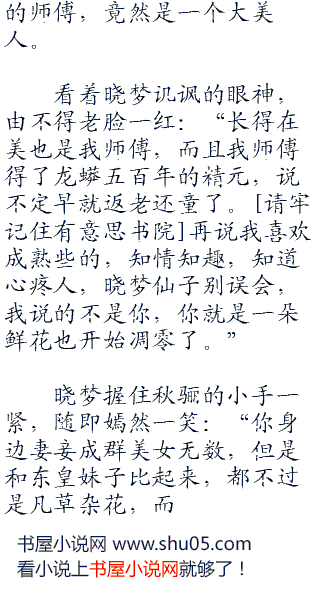 的师傅，竟然是一个大美
人。
看着晓梦讥讽的眼神，
由不得老脸一红：“长得在
美也是我师傅，而且我师傅
得了龙蟒五百年的精元，说
不定早就返老还童了。[请牢
记住有意思书院]再说我喜欢
成熟些的，知情知趣，知道
心疼人，晓梦仙子别误会，
我说的不是你，你就是一朵
鲜花也开始凋零了。”
晓梦握住秋骊的小手一
紧，随即嫣然一笑：“你身
边妻妾成群美女无数，但是
和东皇妹子比起来，都不过
是凡草杂花，而
书屋小说网 www.shu05.com
看小说上书屋小说网就够了！